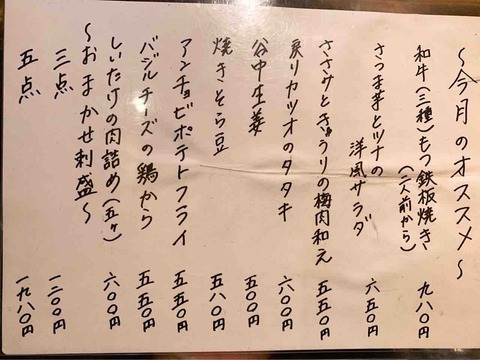 ～今月のオススメ～
和牛(三種)もつ鉄板焼き 九八〇円
(二人前から)
さつま芋とツナの
洋風サラダ 六五〇円
ささみときゅうりの梅肉和え 五五〇円
戻りカツオのタタキ 六〇〇円
谷中生姜 五〇〇円
焼きそら豆 五八〇円
アンチョビポテトフライ 五五〇円
バジルチーズの鶏から 五五〇円
しいたけの肉詰め(五ヶ) 六〇〇円
～おまかせ刺盛～
三点 一二〇〇円
五点 一九八〇円